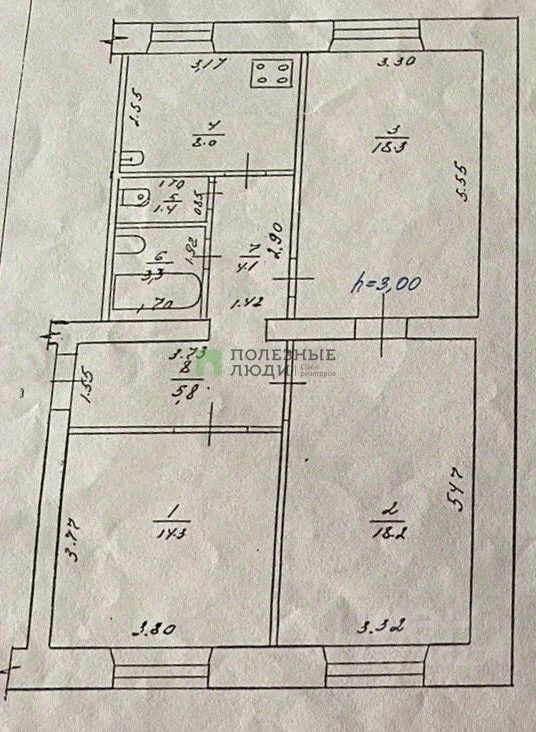 3,17
3.30
2.55
4
8.0
3
18.3
5.55
1.70
5
1.4
0.85
6
3,3
1.92
1.70
7
4.1
2.90
1.42
h=3,00
3.73
8
5,8
1.55
ПОЛЕЗНЫЕ
ЛЮДИ
Союз
риэлторов
1
14.3
3.77
3.80
2
18.2
5.47
3.32